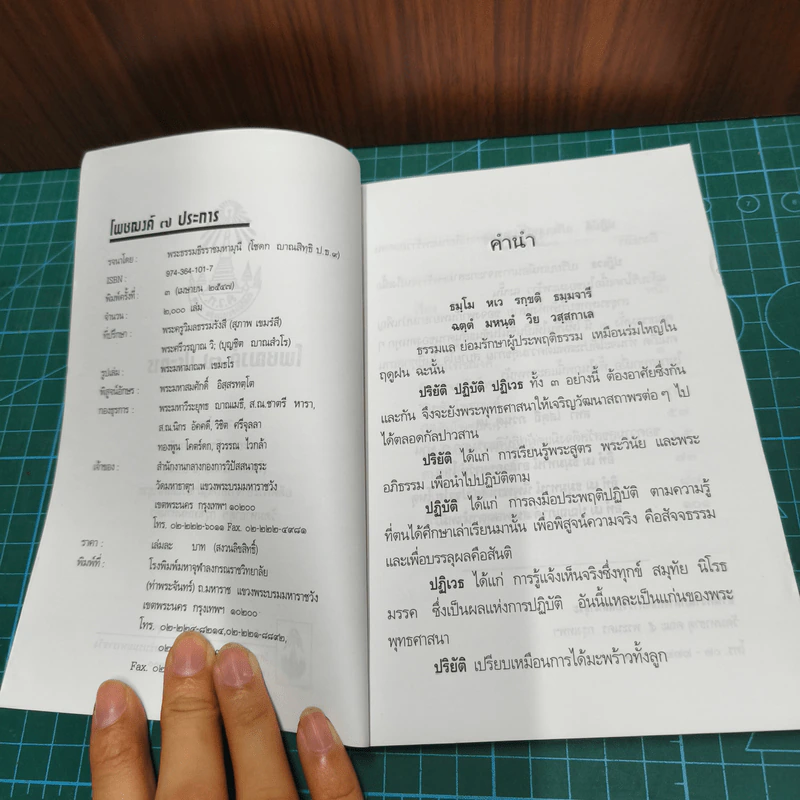 โพชฌงค์ ๗ ประการ
รจนาโดย : พระธรรมธีรราชมหามุนี (โชดก ญาณสิทฺธิ ป.ธ.๙)
ISBN : 974-364-101-7
พิมพ์ครั้งที่ : ๓ (เมษายน ๒๕๔๗)
จำนวน : ๒,๐๐๐ เล่ม
ที่ปรึกษา : พระครูวิมลธรรมรังสี (สุภาพ เขมรํสี)
พระศรีวรญาณ วิ. (บุญชิต ญาณสํวโร)
รูปเล่ม : พระมหามาณพ เขมธโร
พิสูจน์อักษร : พระมหาสมศักดิ์ อิสฺสรทตฺโต
กองธุรการ : พระมหาวีระยุทธ ญาณเมธี, ส.ณ.ชาตรี หารา,
ส.ณ.นิกร อัคคดี, วิชิต ศรีจุลลา
ทองพูน โคตร์ดก, สุวรรณ ไวกล้า
เจ้าของ : สำนักงานกลางกองการวิปัสสนาธุระ
วัดมหาธาตุฯ แขวงพระบรมมหาราชวัง
เขตพระนคร กรุงเทพฯ ๑๐๒๐๐
โทร. ๐๒-๒๒๒-๖๐๑๑ Fax. ๐๒-๒๒๒-๔๙๘๑
ราคา : เล่มละ บาท (สงวนลิขสิทธิ์)
พิมพ์ที่ : โรงพิมพ์มหาจุฬาลงกรณราชวิทยาลัย
(ท่าพระจันทร์) ถ.มหาราช แขวงพระบรมมหาราชวัง
เขตพระนคร กรุงเทพฯ ๑๐๒๐๐
โทร. ๐๒-๒๒๔-๘๒๑๔,๐๒-๒๒๑-๘๘๙๒,
Fax. ๐๒
คำนำ
ธมฺโม หเว รกฺขติ ธมฺมจารึ
ฉตฺตํ มหนฺตํ วิย วสฺสกาเล
ธรรมแล ย่อมรักษาผู้ประพฤติธรรม เหมือนร่มใหญ่ใน
ฤดูฝน ฉะนั้น
ปริยัติ ปฏิบัติ ปฏิเวธ ทั้ง ๓ อย่างนี้ ต้องอาศัยซึ่งกัน
และกัน จึงจะยังพระพุทธศาสนาให้เจริญวัฒนาสถาพรต่อๆ ไป
ได้ตลอดกัลปาวสาน
ปริยัติ ได้แก่ การเรียนรู้พระสูตร พระวินัย และพระ
อภิธรรม เพื่อนำไปปฏิบัติตาม
ปฏิบัติ ได้แก่ การลงมือประพฤติปฏิบัติ ตามความรู้
ที่ตนได้ศึกษาเล่าเรียนมานั้น เพื่อพิสูจน์ความจริง คือสัจจธรรม
และเพื่อบรรลุผลคือสันติ
ปฏิเวธ ได้แก่ การรู้แจ้งเห็นจริงซึ่งทุกข์ สมุทัย นิโรธ
มรรค ซึ่งเป็นผลแห่งการปฏิบัติ อันนี้แหละเป็นแก่นของพระ
พุทธศาสนา
ปริยัติ เปรียบเหมือนการได้มะพร้าวทั้งลูก